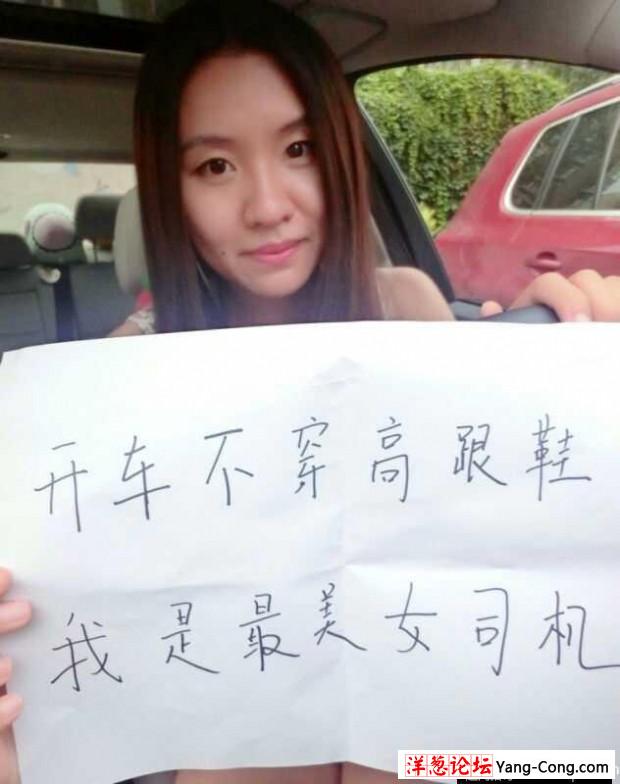 开车不穿高跟鞋
我是最美女司机
洋葱论坛 Yang-Cong.com